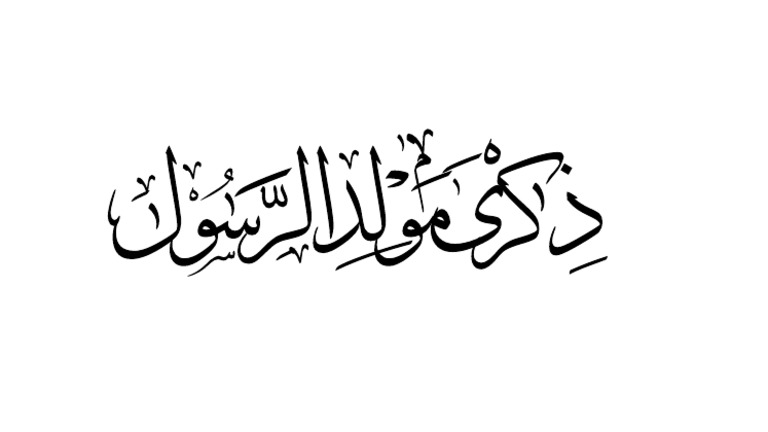 ذِكْرَى مَوْلِدِ الرَّسُوْل